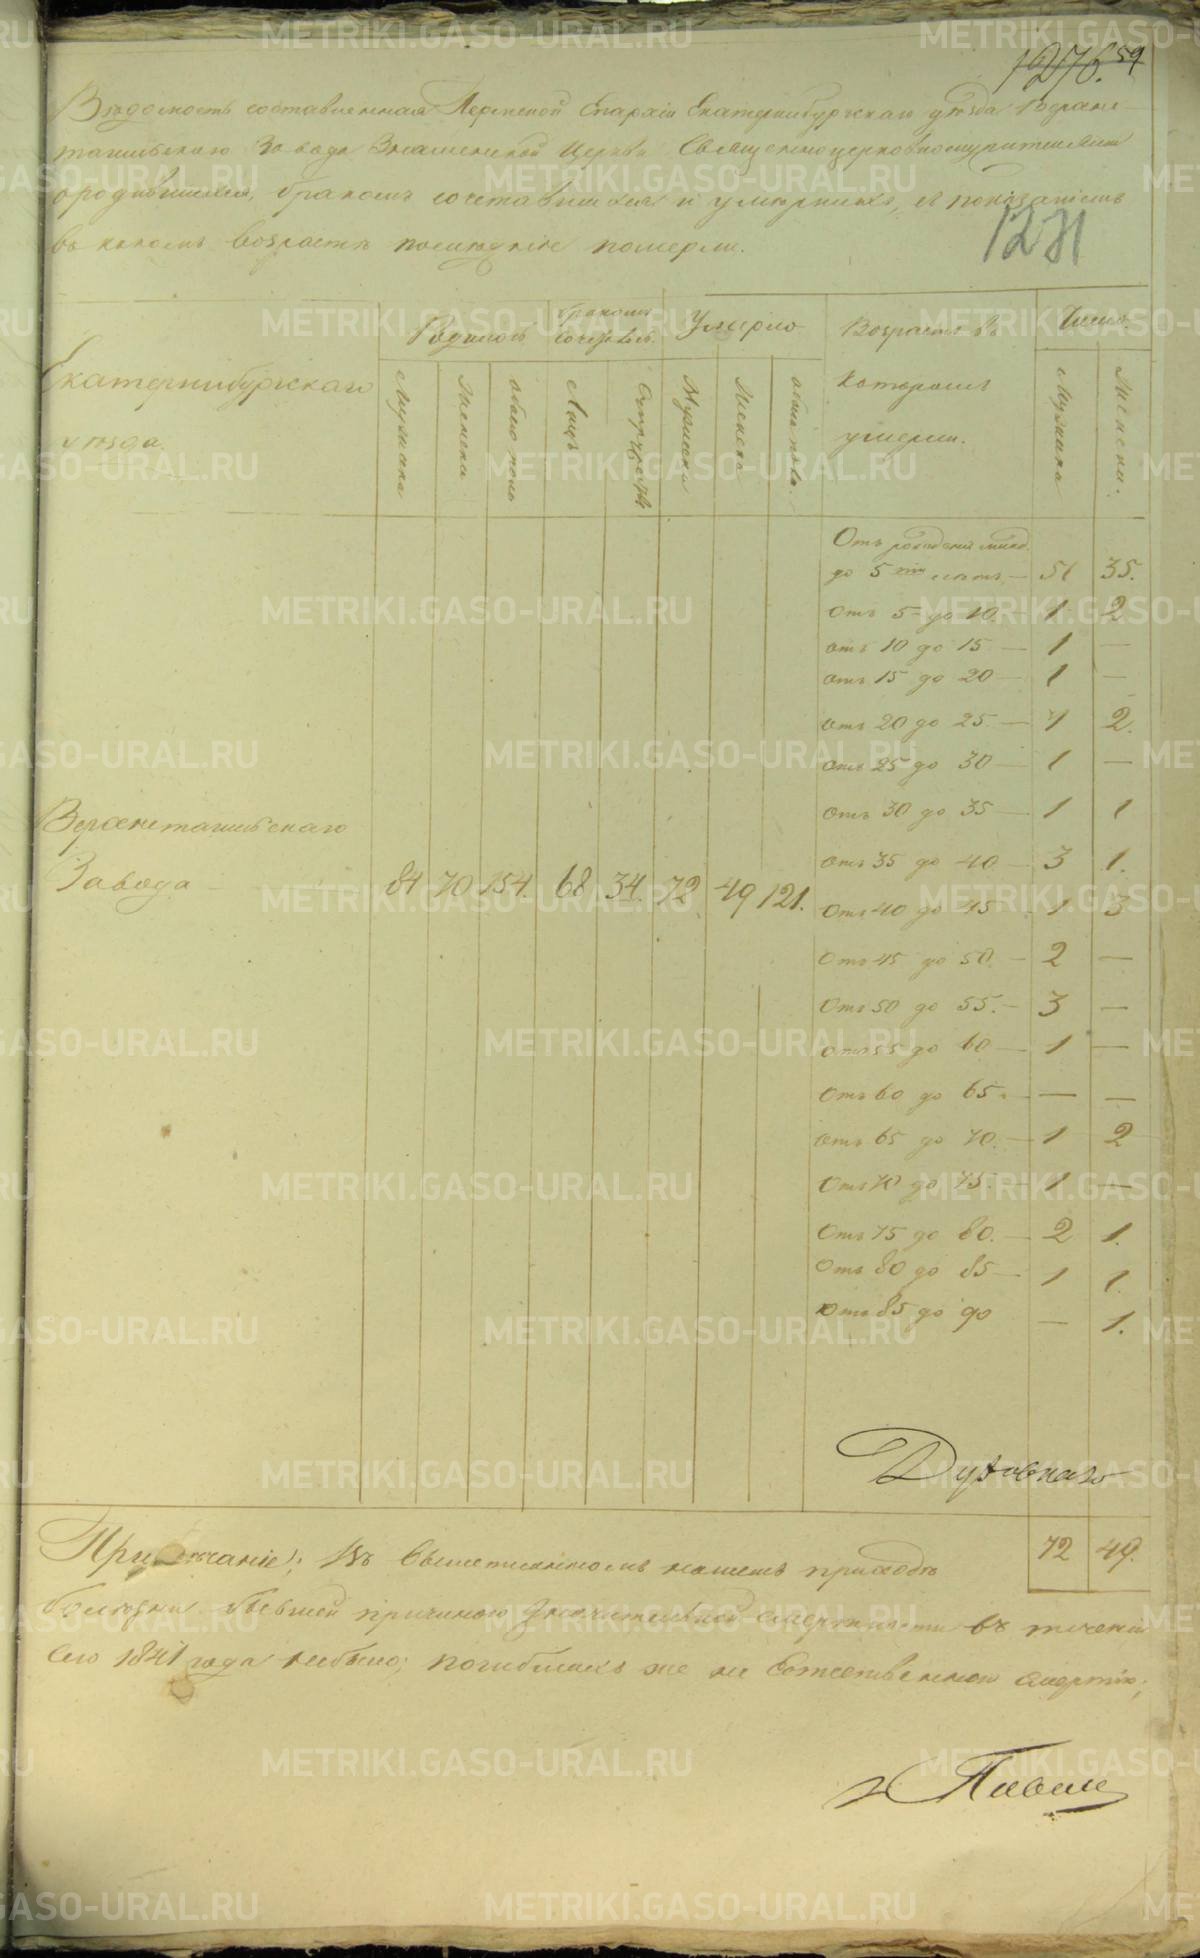 1276. 59
Вѣдомость составленная Пермской Епархіи Екатеринбургскаго уѣзда Верхне-
тагильскаго Завода Знаменской Церкви Священноцерковнослужителями
о родившихся, бракомъ сочетавшихся и умершихъ, съ показаніемъ
въ какомъ возрастѣ послѣдніе померли.
1271
Екатеринбургскаго
уѣзда.
Родилось
бракомъ
Умерло
Возрастъ въ
которомъ
умерли.
Число.
Мужска
Женска
обоего полу
Лицъ
Супружествъ
Мужска
Женска
обоего пола.
Мужска
Женска.
Отъ рожденія млад.
до 5ти лѣтъ — 51 35.
Отъ 5 до 10 — 1 2
отъ 10 до 15 — 1 —
отъ 15 до 20 — 1 —
отъ 20 до 25 — 1 2.
отъ 25 до 30 — 1 —
отъ 30 до 35 — 1 1
отъ 35 до 40 — 3 1.
Верхнетагильскаго
Завода — 84 70 154. 68 34. 72 49 121.
Отъ 40 до 45 — 1 3
Отъ 45 до 50 — 2 —
Отъ 50 до 55. — 3 —
отъ 55 до 60 — 1 —
Отъ 60 до 65. — — —
отъ 65 до 70. — 1 2
Отъ 70 до 75. — 1 —
Отъ 75 до 80. — 2 1.
Отъ 80 до 85 — 1 1.
отъ 85 до 90 — 1.
Духовнаго
72 49.
Примѣчаніе: Въ вышеписанномъ нашемъ приходѣ
болѣзни бывшей причиною значительной смертности въ теченіи
сего 1841 года небыло; погибшихъ же не естественною смертію;
METRIKI.GASO-URAL.RU